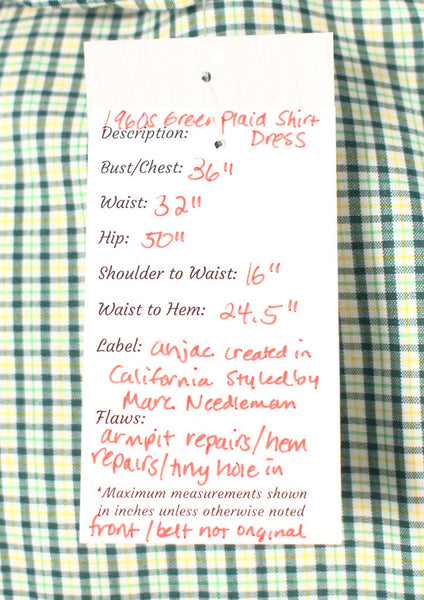 1960s Green Plaid Shirt
Description: Dress
Bust/Chest: 36"
Waist: 32"
Hip: 50"
Shoulder to Waist: 16"
Waist to Hem: 24.5"
Label: anjac created in
California styled by
Marc Needleman
Flaws:
armpit repairs/hem
repairs/tiny hole in
*Maximum measurements shown
in inches unless otherwise noted
front/belt not original